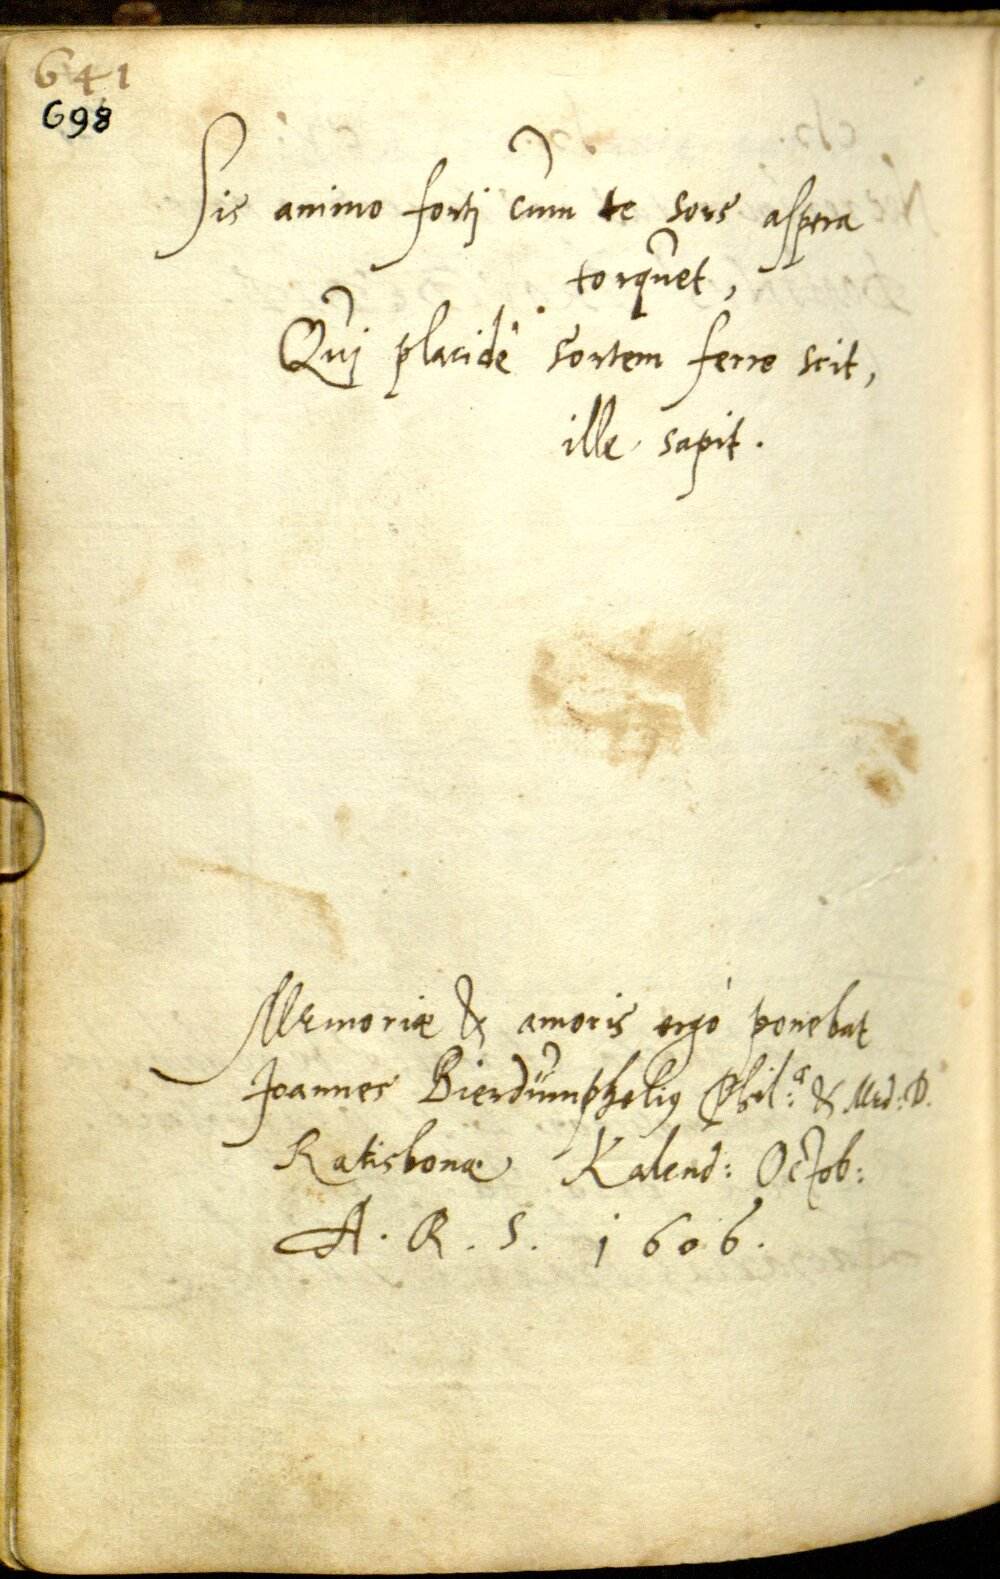 641
698
Sis animo fortj cum te sors aspera
torquet,
Quj placidè sortem ferre scit,
ille sapit.
Memoriæ & amoris ergò ponebat
Joannes Bierdümphelius Phil: & Med: D.
Ratisbonæ Kalend: Octob:
A. R. S. 1606.